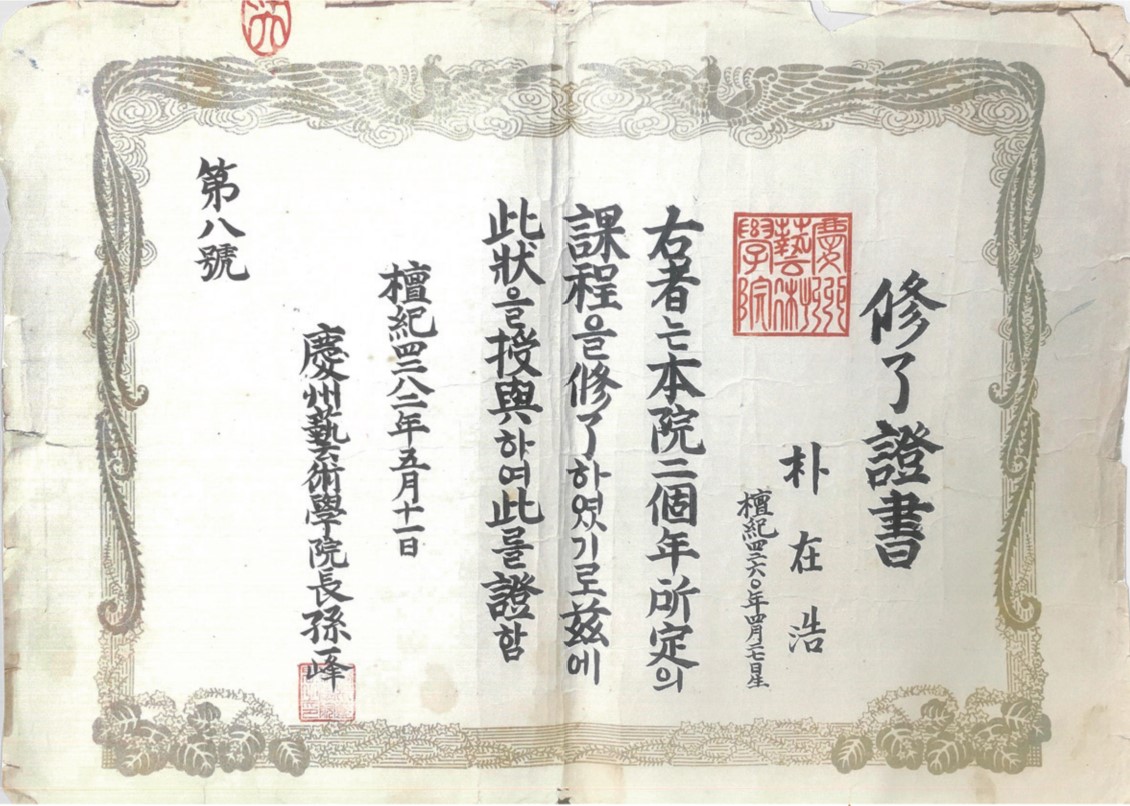 修了證書
朴在浩
檀紀四二六〇年四月二七日生
慶州藝術學院
右者는本院二個年所定의
課程을修了하였기로玆에
此狀을授與하여此를證함
檀紀四二八二年五月十一日
慶州藝術學院長孫一峰
第八號